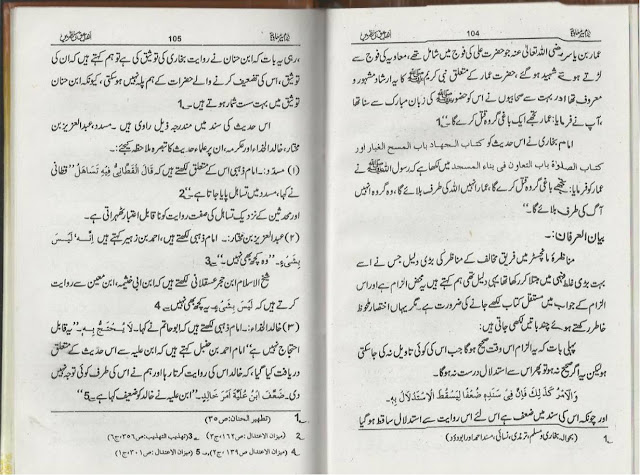 104
عمار بن یاسر رضی اللہ تعالیٰ عنہ جو حضرت علی کی فوج میں شامل تھے، معاویہ کی فوج سے
لڑتے ہوئے شہید ہو گئے، حضرت عمار کے متعلق نبی کریم ﷺ کا یہ ارشاد مشہور و
معروف تھا اور بہت سے صحابیوں نے اس کو حضور ﷺ کی زبان مبارک سے سنا تھا
، آپ نے فرمایا: عمار تجھے ایک باغی گروہ قتل کرے گا۔
امام بخاری نے اس حدیث کو کتاب الجہاد باب المسح الغبار اور
کتاب الصلوٰۃ باب التعاون فی بناء المسجد میں لکھا ہے کہ رسول اللہ ﷺ نے
عمار کو فرمایا: تجھے باغی گروہ قتل کرے گا، عمار انہیں اللہ کی طرف بلائے گا، وہ گروہ انہیں
آگ کی طرف بلائے گا۔
بیان العرفان:۔
مناظرہ مانچسٹر میں فریق مخالف کے مناظر کی بڑی دلیل جس نے اسے
بہت بڑی غلط فہمی میں مبتلا کر رکھا تھا یہی دلیل تھی ہم کہتے ہیں یہ محض الزام ہے اور اس
الزام کے جواب میں مستقل کتاب لکھے جانے کی ضرورت ہے۔ مگر یہاں اختصار ملحوظ
خاطر رکھتے ہوئے چند باتیں لکھی جاتی ہیں:
پہلی بات کہ یہ الزام اس وقت صحیح ہوگا جب اس کی کوئی تاویل نہ کی جا سکتی
ہو لیکن یہ اگر صحیح نہ ہو تو پھر اس سے استدلال درست نہ ہوگا۔
وَالْاَمْرُ كَذٰلِكَ فَاِنَّ فِىْ سَنَدِهٖ ضُعْفًا لِيَسْقُطَ الْاِسْتِدْلَالُ بِهٖ۔
اور چونکہ اس کی سند میں ضعف ہے اس لئے اس روایت سے استدلال ساقط ہو گیا
1۔ (بحوالہ بخاری و مسلم، ترمذی، نسائی، مسند احمد اور ابوداؤد)
105
، رہی یہ بات کہ ابن حنان نے روایت بخاری کی توثیق کی ہے تو ہم کہتے ہیں کہ ان کی
توثیق، اس کی تضعیف کرنے والے حضرات کے ہم پلہ نہیں ہو سکتی، کیونکہ ابن حنان
توثیق میں بہت سست شمار ہوتے ہیں۔1
اس حدیث کی سند میں مندرجہ ذیل راوی ہیں۔ مسدد، عبدالعزیز بن
مختار، خالد الحذاء اور عکرمہ، ان پر علماء حدیث کا تبصرہ ملاحظہ کیجئے:۔
(۱) مسدّد:۔ امام ذہبی اس کے متعلق لکھتے ہیں کہ قَالَ الْقَطَّانِىُّ فِيْهِ تَسَاهُلٌ" قطانی
نے کہا، مسدد میں تساہل پایا جاتا ہے۔"2
اور محدثین کے نزدیک تساہل کی صفت روایت کو ناقابل اعتبار ٹھہراتی ہے۔
(۲) عبدالعزیز بن مختار:۔ امام ذہبی لکھتے ہیں، احمد بن زہیر کہتے ہیں اِنَّهٗ لَيْسَ
بِشَىْءٍ۔ "وہ کچھ بھی نہیں۔"3
شیخ الاسلام ابن حجر عسقلانی لکھتے ہیں کہ ابن ابی خثیمہ، ابن معین سے روایت
کرتے ہیں کہ لَيْسَ بِشَىْءٍ یہ کچھ بھی نہیں ہے 4
(۳) خالد الحذاء:۔ امام ذہبی لکھتے ہیں کہ ابو حاتم نے کہا۔ لَا يُحْتَجُّ بِهٖ۔ "یہ قابل
احتجاج نہیں ہے" امام احمد بن حنبل کہتے ہیں کہ ابن علیہ سے اس حدیث کے متعلق
دریافت کیا گیا، کہ خالد اس کی روایت کرتا رہا اور ہم نے اس کی طرف کوئی توجہ نہیں
دی۔ ضَعَّفَ ابْنُ عُلَيَّةَ اَمْرَ خَالِدٍ۔ "ابن علیہ نے خالد کو ضعیف کہا ہے"5
1۔ (تطہیر الجنان: ص ۳۵)
2۔ (میزان الاعتدال: ص ۱۶۲، ج ۳) 3 (تہذیب التہذیب: ص ۳۵۶، ج ۶)
4 (میزان الاعتدال: ص ۱۳۹، ج ۲)، 5 (میزان الاعتدال: ص ۳۰۱، ج ۱)